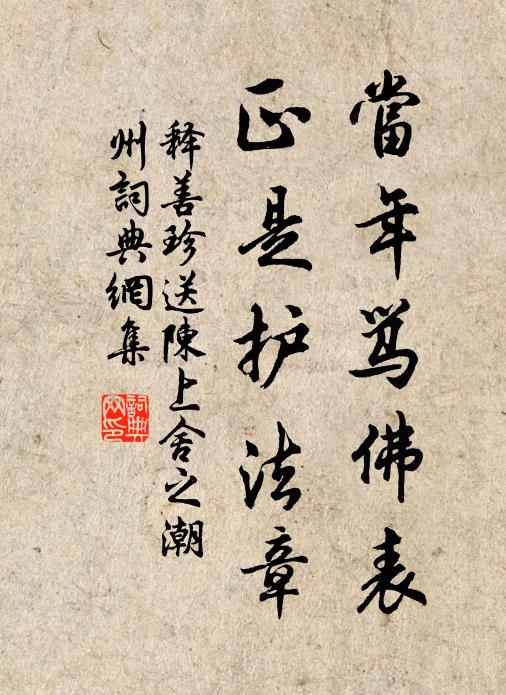 當年骂佛表
正是护法章
释善珍送陳上舍之潮
州詞典網集
詞典
网印